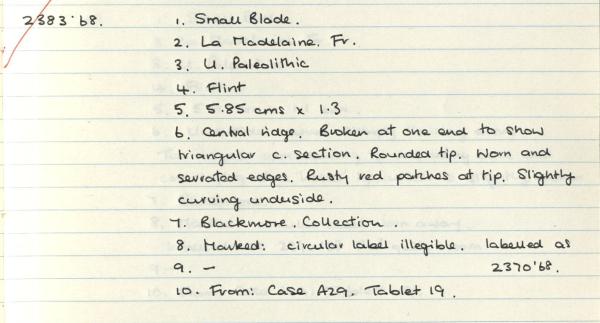 2383'68. 1. Small Blade.
2. La Madelaine. Fr.
3. U. Paleolithic
4. Flint
5. 5.85 cms x 1.3
6. Central ridge. Broken at one end to show
triangular c. section. Rounded tip. Worn and
serrated edges. Rusty red patches at tip. Slightly
curving underside.
7. Blackmore. Collection.
8. Marked: circular label illegible. labelled as
9. – 2370'68.
10. From: Case A29. Tablet 19.